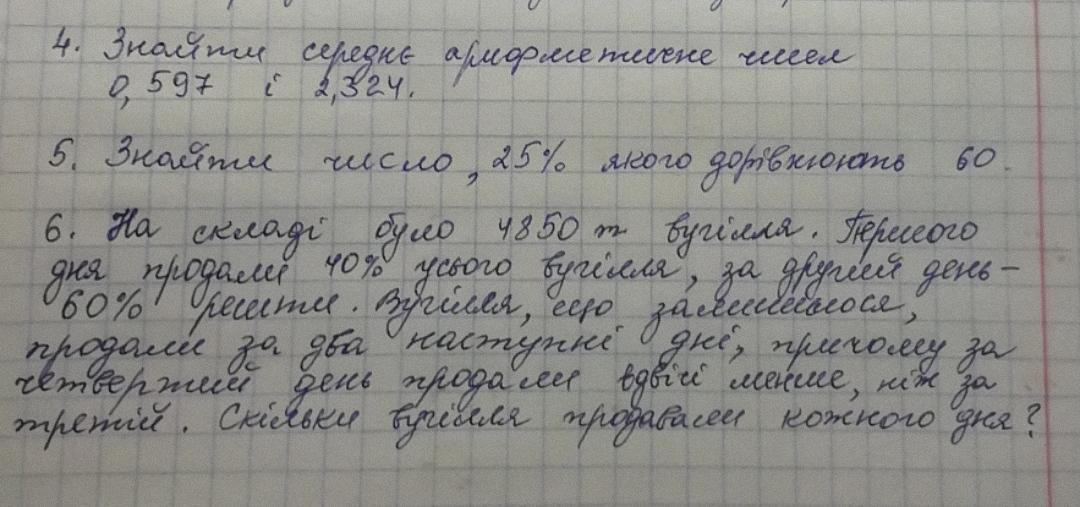 4. Знайти середнє арифметичне чисел
0,597 і 2,324.
5. Знайти число, 25% якого дорівнюють 60.
6. На складі було 4850 т вугілля. Першого
дня продали 40% усього вугілля, за другий день –
60% решти. Вугілля, що залишилося,
продали за два наступні дні, причому за
четвертий день продали вдвічі менше, ніж за
третій. Скільки вугілля продавали кожного дня?